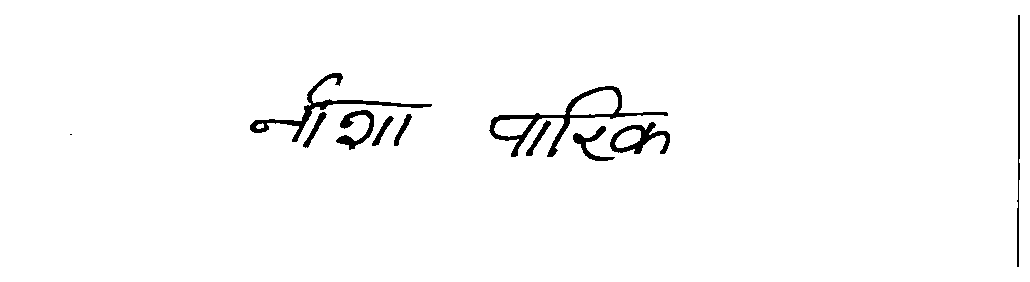 र्नाशा पारिक